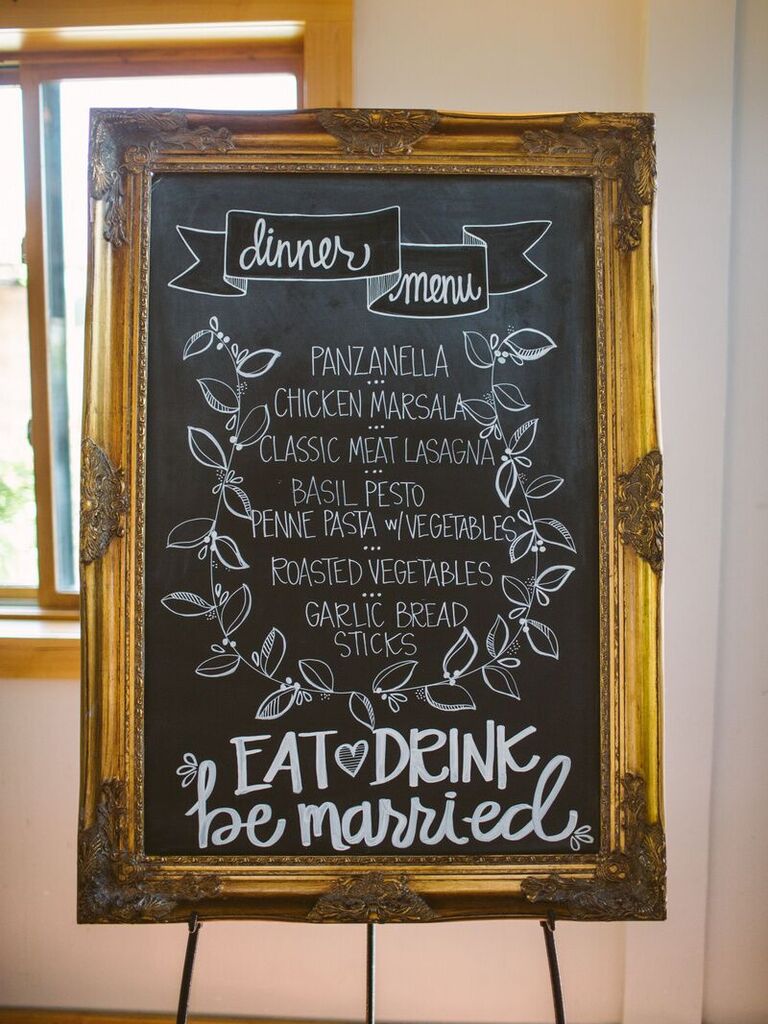 dinner
menu
PANZANELLA
CHICKEN MARSALA
CLASSIC MEAT LASAGNA
BASIL PESTO
PENNE PASTA w/VEGETABLES
ROASTED VEGETABLES
GARLIC BREAD
STICKS
EAT DRINK
be married